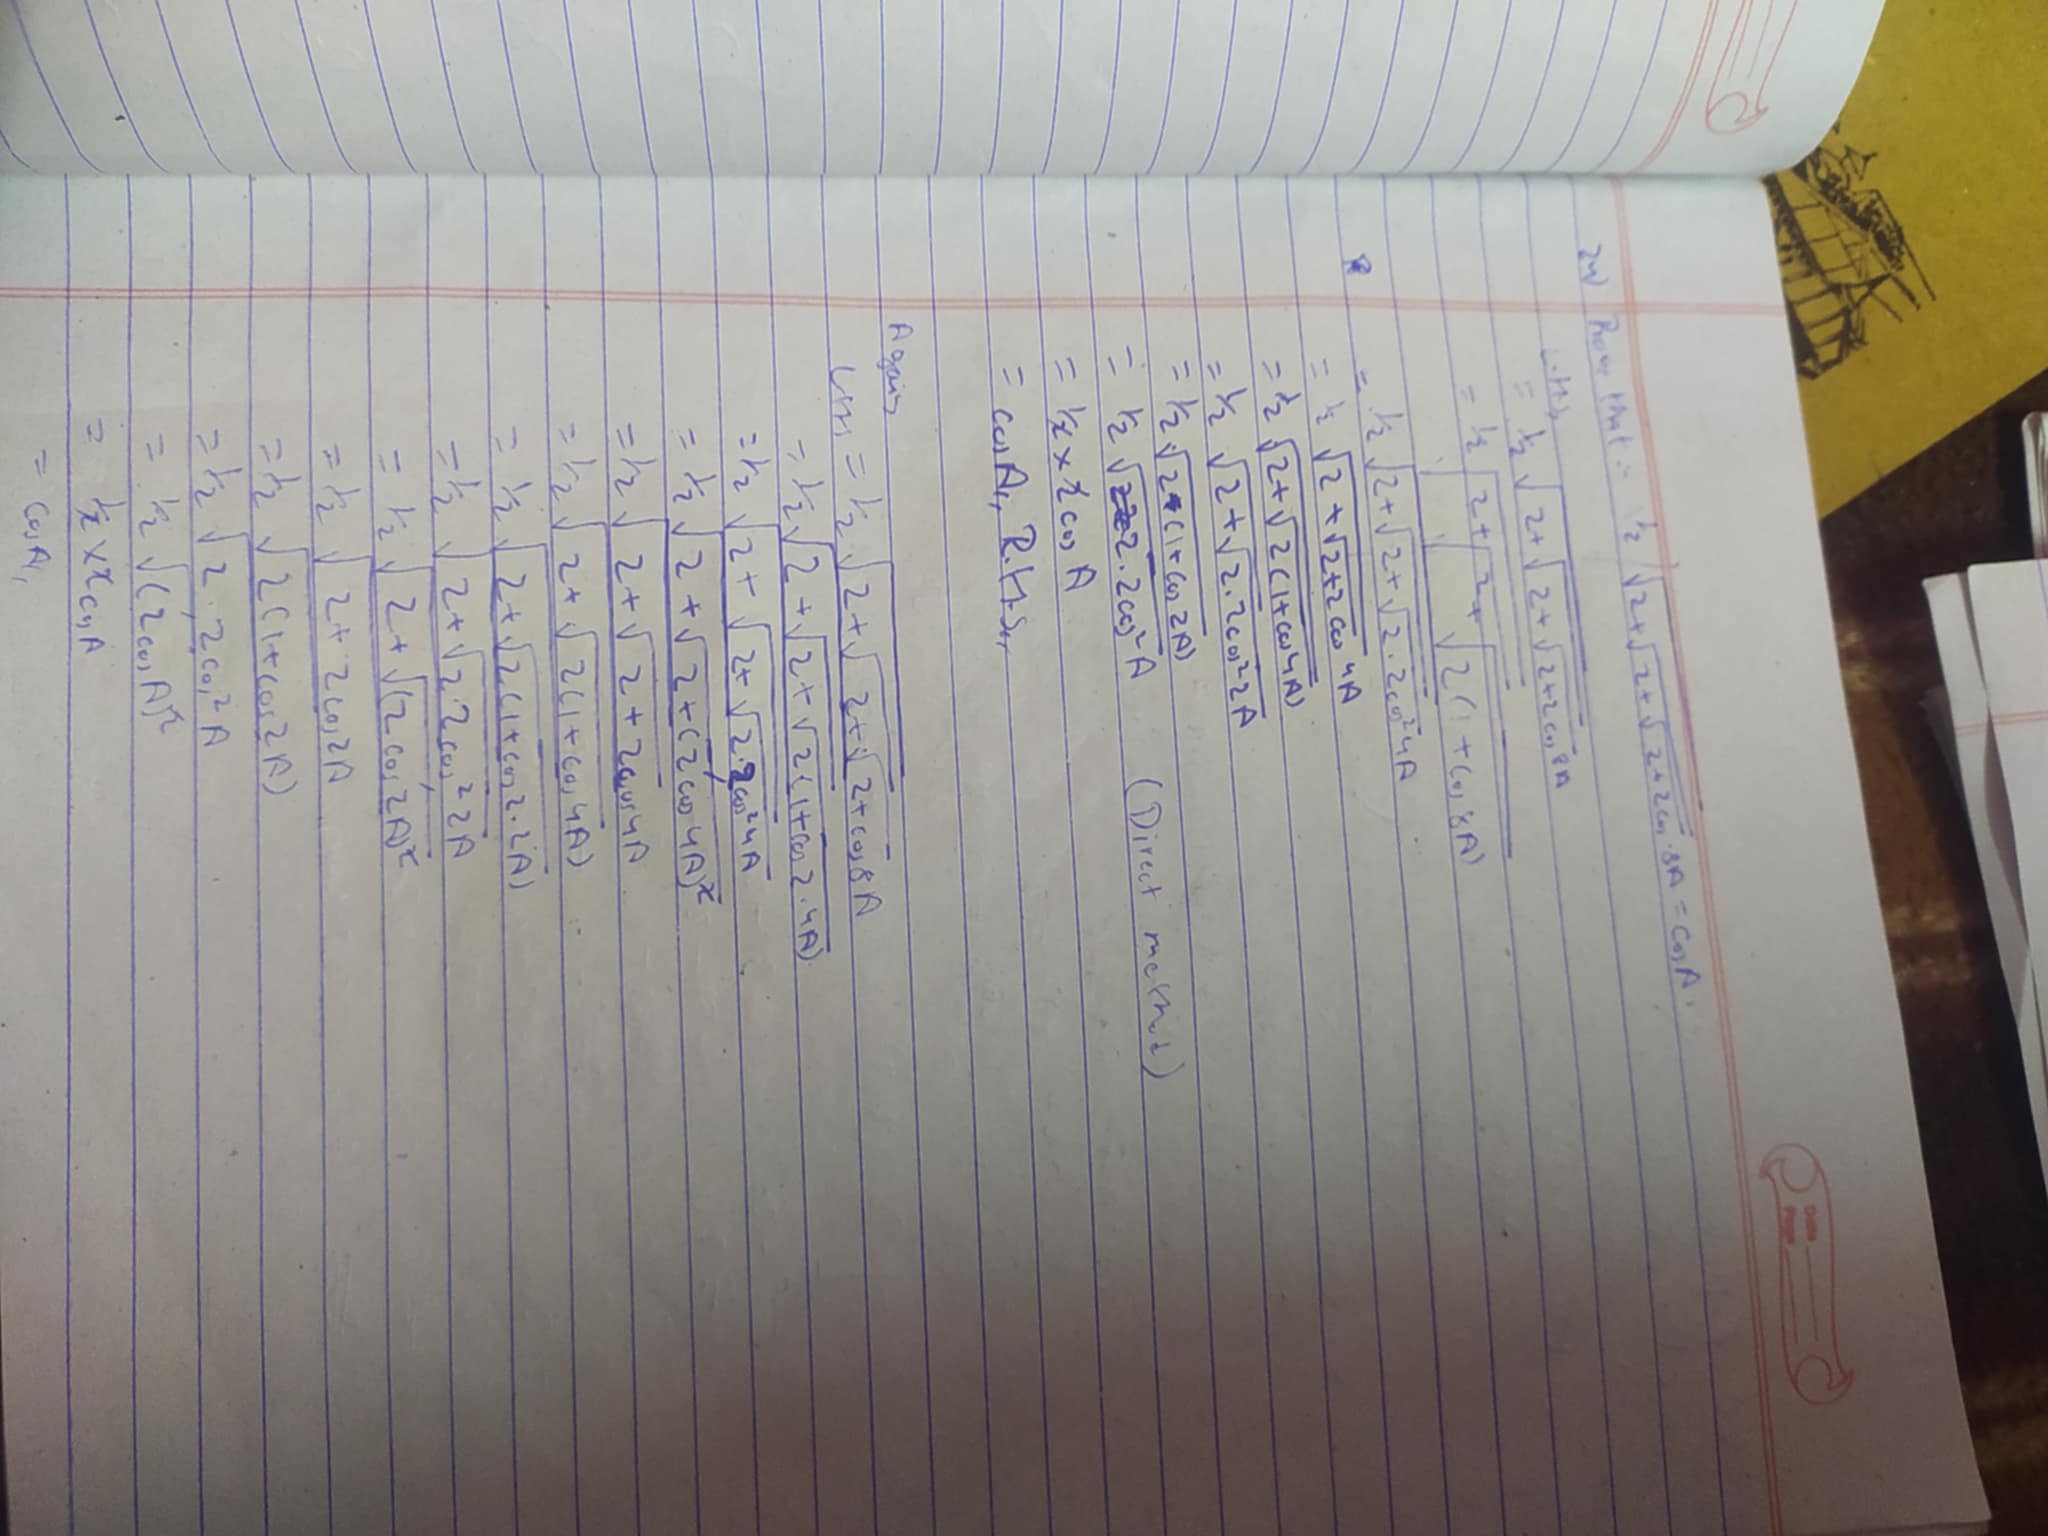 Prove that :- ½ √2+√2+√2+√2+2cos 8A = cosA,
L.H.S
= ½ √2+√2+√2+√2+2cos8A
= ½ √2+√2+√2(1+cos8A)
= ½ √2+√2+√2.2cos²4A
= ½ √2+√2+2cos4A
= ½ √2+√2(1+cos4A)
= ½ √2+√2.2cos²2A
= ½ √2(1+cos2A)
= ½ √2.2cos²A (Direct method)
= ½ × 2cosA
= cosA, R.H.S,
Again,
LHS = ½ √2+√2+√2+cos8A
= ½ √2+√2+√2(1+cos2.4A)
= ½ √2+√2+√2.2cos²4A
= ½ √2+√2+(2cos4A)²
= ½ √2+√2+2cos4A
= ½ √2+√2(1+cos4A)
= ½ √2+√2(1+cos2.2A)
= ½ √2+√2.2cos²2A
= ½ √2+√(2cos2A)²
= ½ √2+2cos2A
= ½ √2(1+cos2A)
= ½ √2.2cos²A
= ½ √(2cosA)²
= ½ × 2cosA
= cosA,
Date
Page